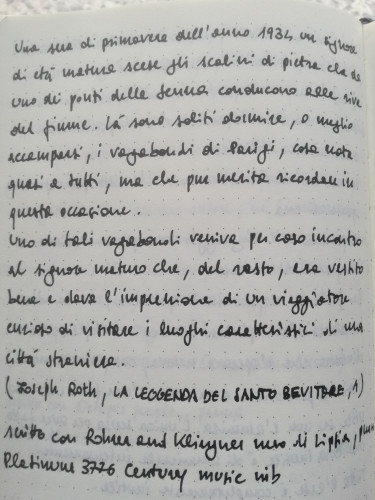 Una sera di primavera dell'anno 1934 un signore
di età matura scese gli scalini di pietra che da
uno dei ponti della Senna conducono alle rive
del fiume. Là sono soliti dormire, o meglio
accamparsi, i vagabondi di Parigi, cosa nota
quasi a tutti, ma che pure merita ricordare in
questa occasione.
Uno di tali vagabondi veniva per caso incontro
al signore maturo che, del resto, era vestito
bene e dava l'impressione di un viaggiatore
curioso di visitare i luoghi caratteristici di una
città straniera.
(Joseph Roth, LA LEGGENDA DEL SANTO BEVITORE, 1)
scritto con Rohrer and Klingner nero di Lipsia,
Platinum 3776 Century music nib